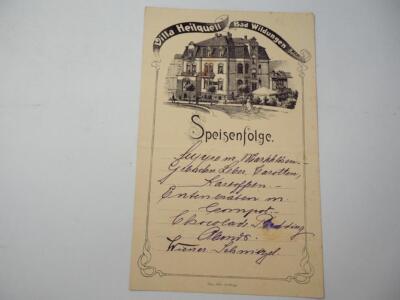 Villa Heilquell Bad Wildungen
Speisenfolge.
Suppe m. Markklösen
Gebacken Leber. Carotten,
Kartoffen
Entenbraten m.
Compot
Chocolade Pudding
Abends.
Wiener Schnitzel.